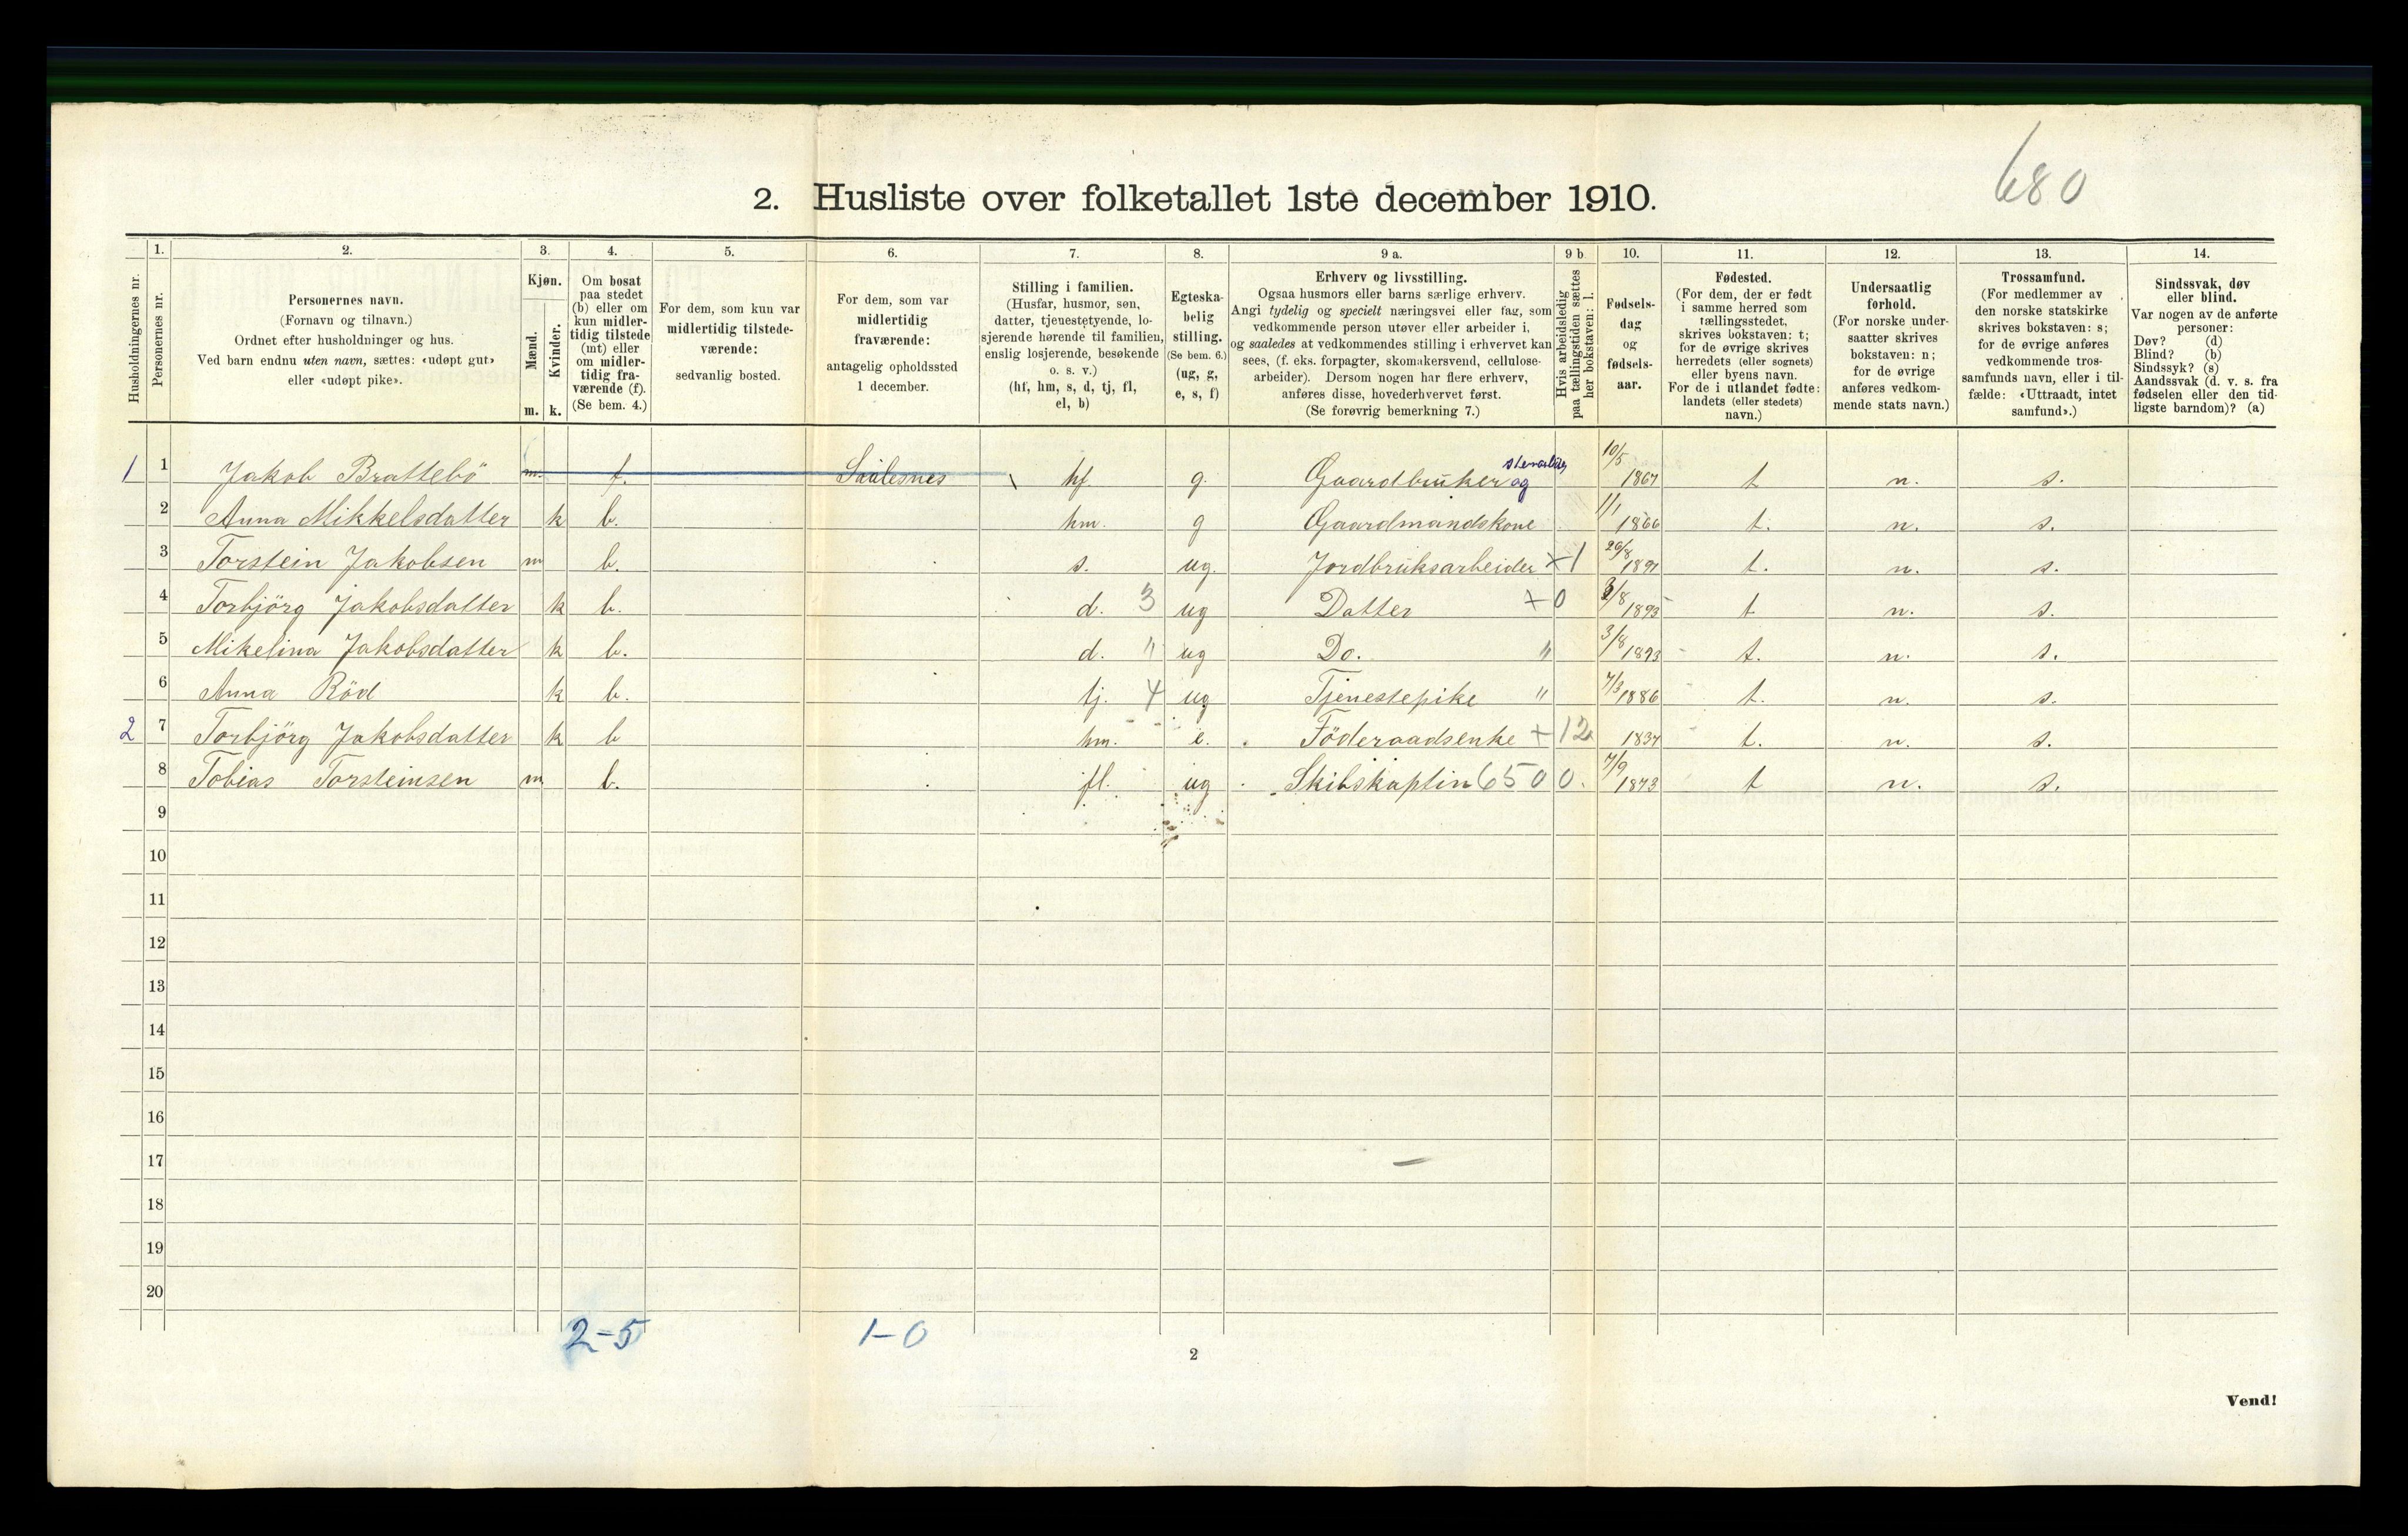 680
2. Husliste over folketallet 1ste december 1910.
Husholdningernes nr.
1. Personernes nr.
2. Personernes navn. (Fornavn og tilnavn.) Ordnet efter husholdninger og hus. Ved barn endnu uten navn, sættes: «udøpt gut» eller «udøpt pike».
3. Kjøn. Mænd. m. Kvinder. k.
4. Om bosat paa stedet (b) eller om kun midlertidig tilstede (mt) eller om midlertidig fraværende (f). (Se bem. 4.)
5. For dem, som kun var midlertidig tilstedeværende: sedvanlig bosted.
6. For dem, som var midlertidig fraværende: antagelig opholdssted 1 december.
7. Stilling i familien. (Husfar, husmor, søn, datter, tjenestetyende, losjerende hørende til familien, enslig losjerende, besøkende o. s. v.) (hf, hm, s, d, tj, fl, el, b)
8. Egteskabelig stilling. (Se bem. 6.) (ug, g, e, s, f)
9 a. Erhverv og livsstilling. Ogsaa husmors eller barns særlige erhverv. Angi tydelig og specielt næringsvei eller fag, som vedkommende person utøver eller arbeider i, og saaledes at vedkommendes stilling i erhvervet kan sees, (f. eks. forpagter, skomakersvend, cellulosearbeider). Dersom nogen har flere erhverv, anføres disse, hovederhvervet først. (Se forøvrig bemerkning 7.)
9 b Hvis arbeidsledig paa tællingstiden sættes her bokstaven: l.
10. Fødselsdag og fødselsaar.
11. Fødested. (For dem, der er født i samme herred som tællingsstedet, skrives bokstaven: t; for de øvrige skrives herredets (eller sognets) eller byens navn. For de i utlandet fødte: landets (eller stedets) navn.)
12. Undersaatlig forhold. (For norske undersaatter skrives bokstaven: n; for de øvrige anføres vedkommende stats navn.)
13. Trossamfund. (For medlemmer av den norske statskirke skrives bokstaven: s; for de øvrige anføres vedkommende trossamfunds navn, eller i tilfælde: «Uttraadt, intet samfund».)
14. Sindssvak, døv eller blind. Var nogen av de anførte personer: Døv? (d) Blind? (b) Sindssyk? (s) Aandssvak (d. v. s. fra fødselen eller den tidligste barndom)? (a)
1 1 Jakob Brattebö m. f. hf g. Gaardbruker og 10/5 1867 t n. s.
2 Anna Mikkelsdatter k b. hm. g Gaardmandskone 1/1 1866 t. n. s.
3 Torstein Jakobsen m b. s. ug. Jordbruksarbeider +1 26/8 1891 t. n. s.
4 Torbjörg Jakobsdatter k b. d. 3 ug Datter +0 3/8 1893 t n. s.
5 Mikelina Jakobsdatter k b. d. " ug Do. " 3/8 1893 t. n. s.
6 Anna Röd k b. tj. 4 ug Tjenestepike " 7/3 1886 t. n. s.
2 7 Torbjörg Jakobsdatter k b hm. e. Föderaadsenke +12 1837 t. n. s.
8 Tobias Torsteinsen m b. fl. ug Skibskaptin 6500. 7/9 1873 t n. s.
9
10
11
12
13
14
15
16
17
18
19
20
2-5 1-0
2
Vend!